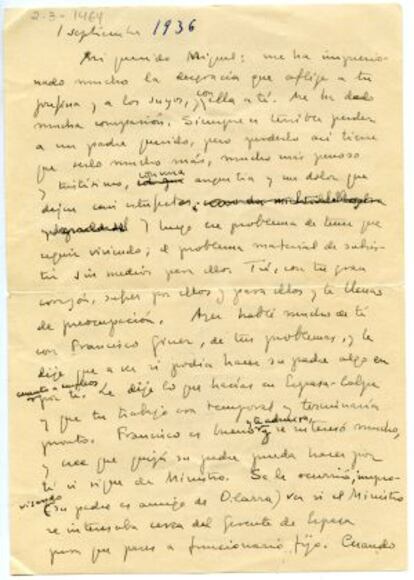 2-3-1464
1 septiembre 1936
Mi querido Miguel: me ha impresio-
nado mucho la desgracia que aflige a tu
Josefina y a los suyos, con ella a ti. Me ha dado
mucha compasión. Siempre es terrible perder
a un padre querido, pero perderlo así tiene
que serlo mucho más, mucho más penoso
y tristísimo, con una angustia y un dolor que
dejen casi estupefactos.
Y luego un problema de tener que
seguir viviendo; el problema material de subsis-
tir sin medios para ellos. Tú, con tu gran
corazón, sufres por ellos y para ellos y te llenas
de preocupación. Ayer hablé mucho de ti
con Francisco Giner, de tus problemas, y le
dije que a ver si podía hacer su padre algo en
cuanto a empleos
por ti. Le dije lo que hacías en Espasa-Calpe
y que tu trabajo era temporal y terminaría
pronto. Francisco es bueno y te admira, y se interesó mucho,
y cree que quizá su padre pueda hacer por
ti si sigue de Ministro. Se le ocurrió, impro-
visando (su padre es amigo de Olarra) ver si el Ministro
se interesaba cerca del Gerente de Espasa
para que pases a funcionario fijo. Cuando